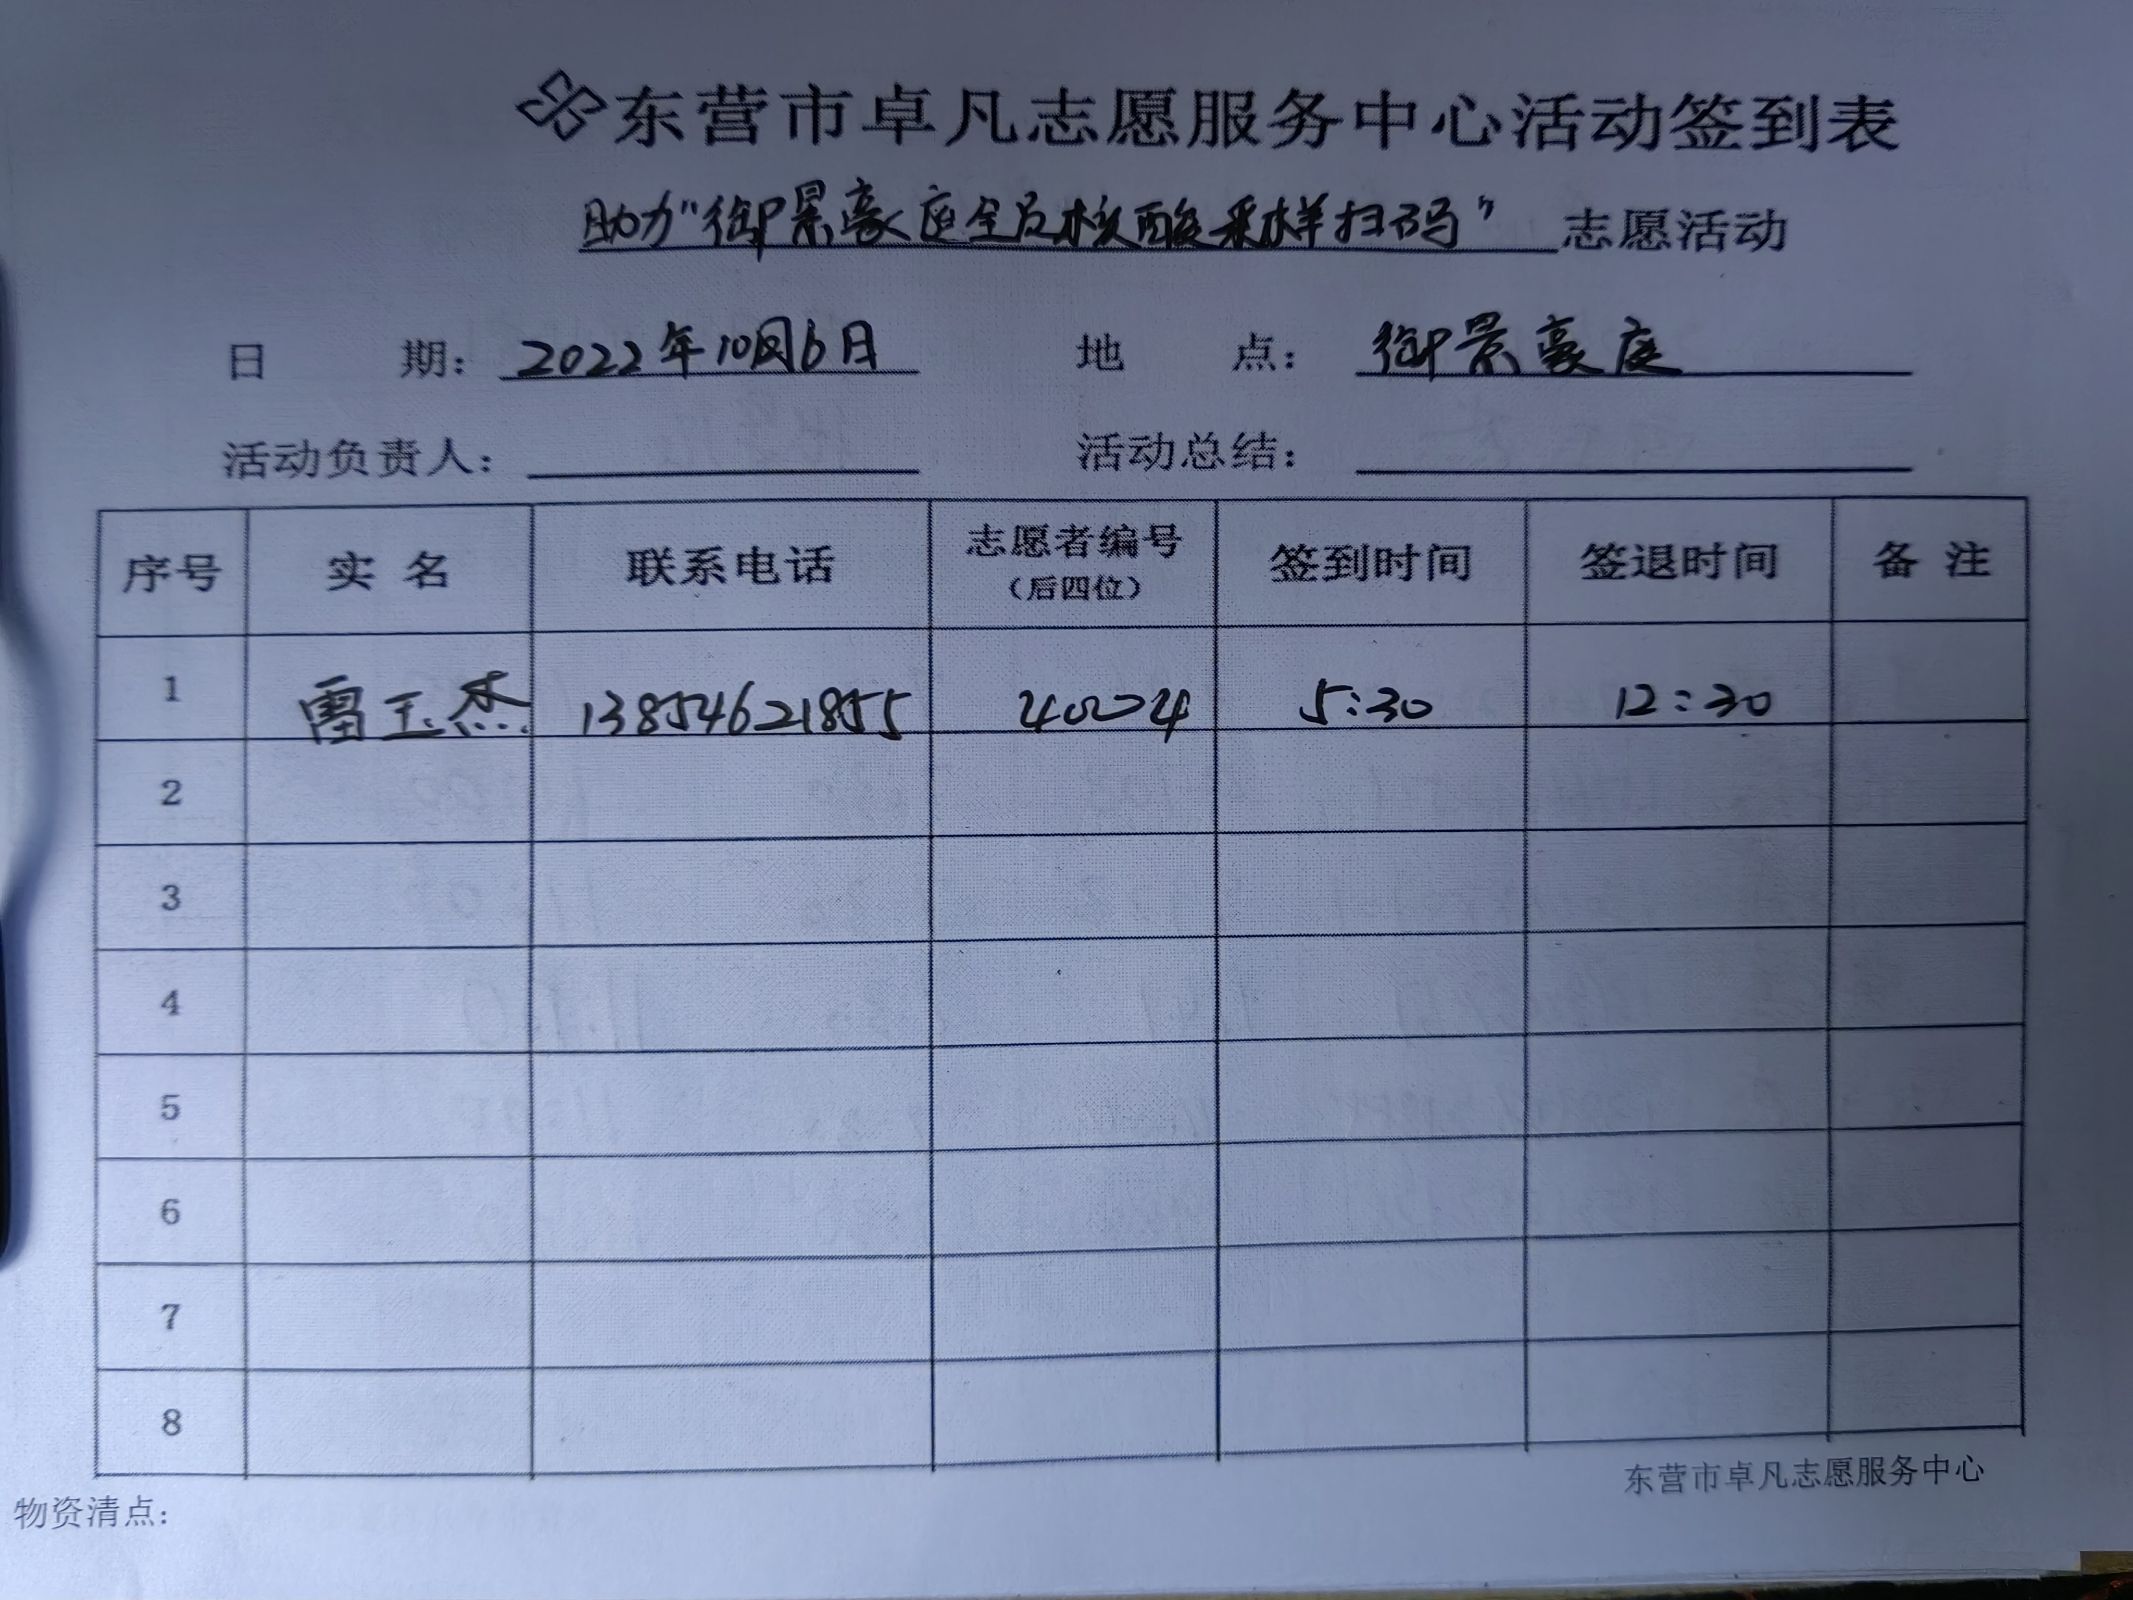 东营市卓凡志愿服务中心活动签到表
助力"御景豪庭全员核酸采样扫码" 志愿活动
日 期: 2022年10月6日 地 点: 御景豪庭
活动负责人: 活动总结:
序号 实名 联系电话 志愿者编号 (后四位) 签到时间 签退时间 备注
1 雷玉杰 13854621855 4004 5:30 12:30
2
3
4
5
6
7
8
东营市卓凡志愿服务中心
物资清点: